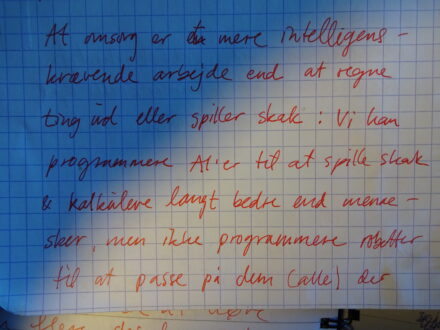 At omsorg er mere intelligens-
krævende arbejde end at regne
ting ud eller spiller skak: Vi kan
programmere AI'er til at spille skak
& kalkulere langt bedre end menne-
sker, men ikke programmere robotter
til at passe på dem (alle) der